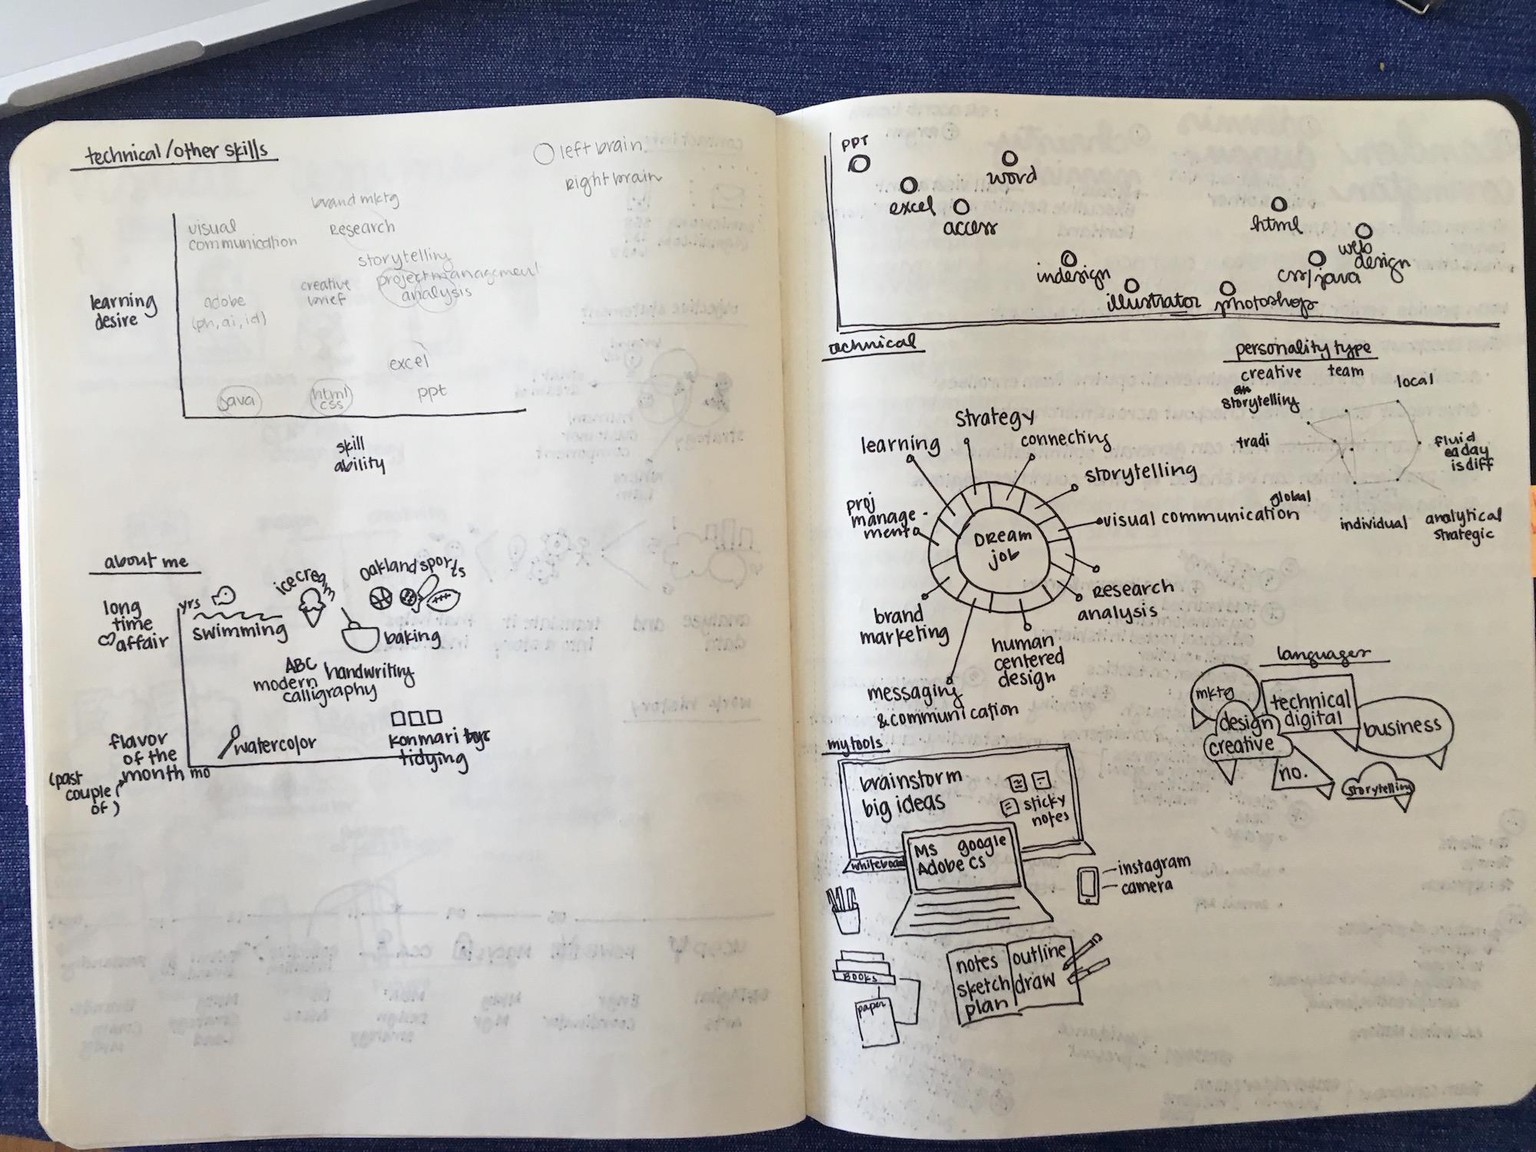 technical/other skills
left brain
right brain
brand mktg
visual
communication
Research
storytelling
project management
analysis
creative
brief
learning
desire
adobe
(ph, ai, id)
excel
java
html
css
ppt
skill
ability
about me
long
time
affair
yrs
swimming
ice cream
Oakland sports
baking
ABC
modern handwriting
calligraphy
flavor
of the
month mo
(past
couple
of)
watercolor
Konmari
tidying
PPT
excel
word
access
indesign
illustrator
photoshop
html
web
design
css/java
technical
personality type
creative
team
local
storytelling
tradi
fluid
ea day
is diff
global
individual
analytical
strategic
DREAM
job
learning
strategy
connecting
storytelling
visual communication
Research
analysis
human
centered
design
messaging
& communication
brand
marketing
proj
manage-
ment
languages
mktg
technical
digital
design
creative
business
no.
storytelling
my tools
brainstorm
big ideas
sticky
notes
whiteboard
MS google
Adobe CS
instagram
camera
BOOKS
paper
notes
sketch
plan
outline
draw